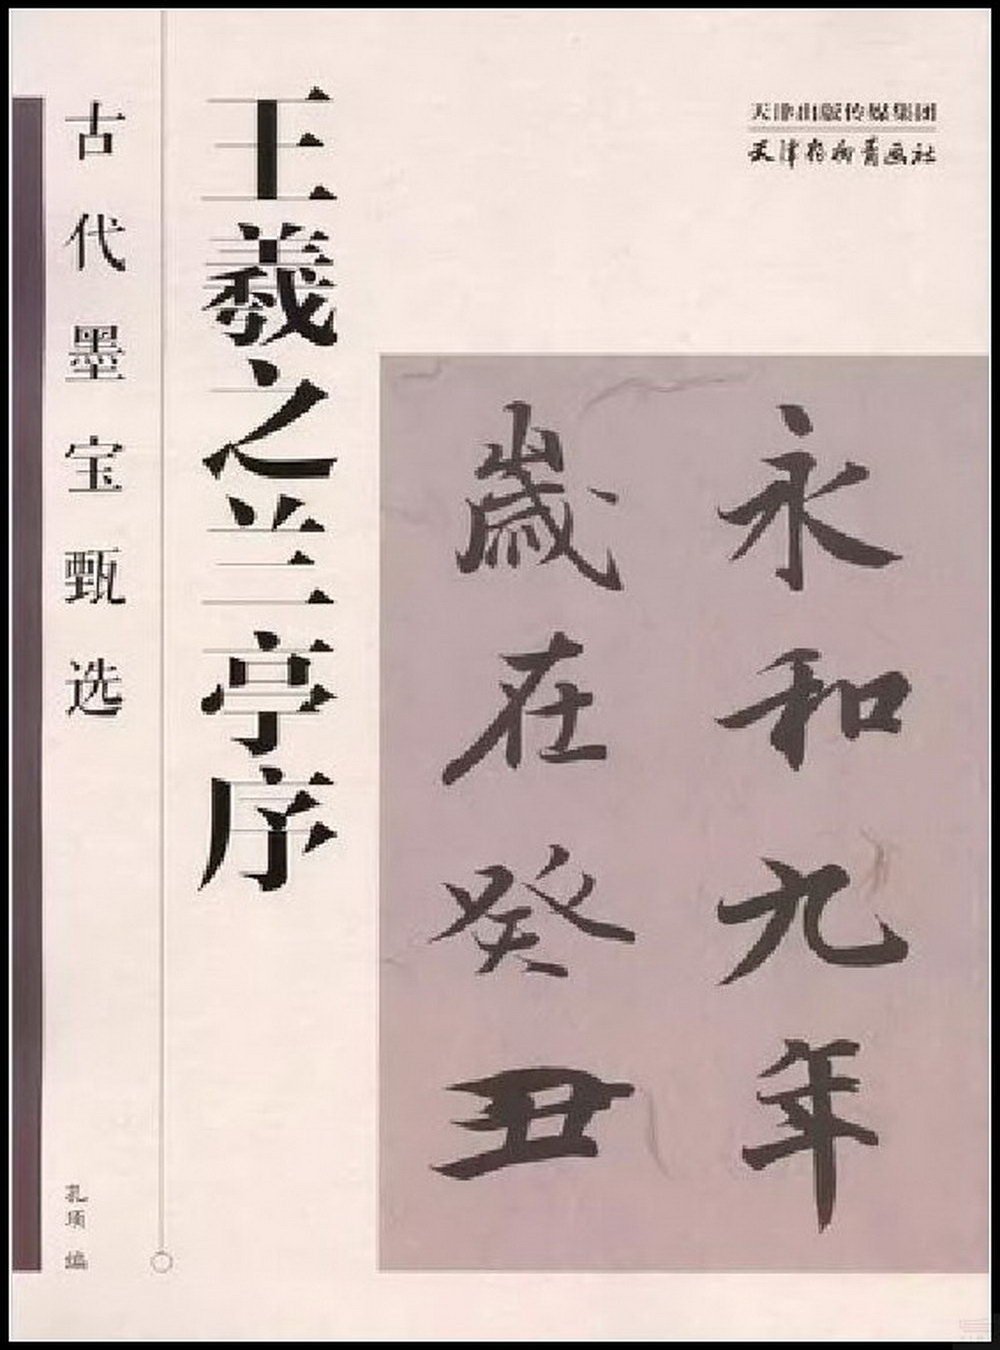 天津出版传媒集团
天津杨柳青画社
古代墨宝甄选
王羲之兰亭序
永和九年
歲在癸丑
编